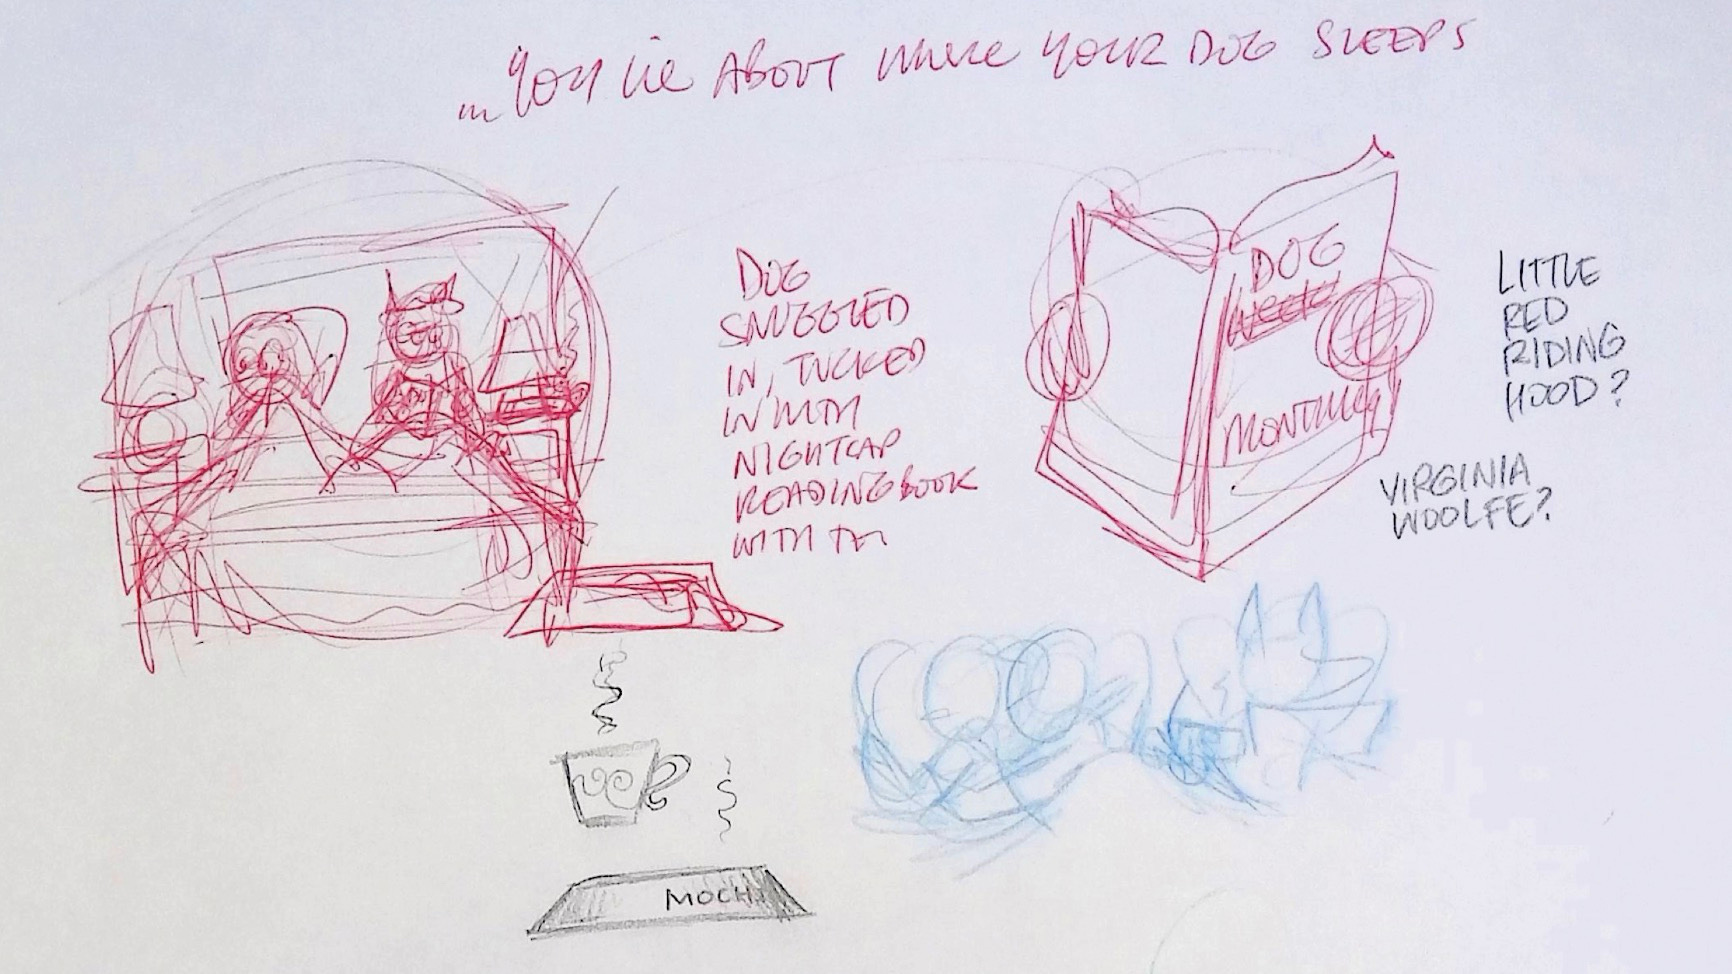 ...YOU LIE ABOUT WHERE YOUR DOG SLEEPS
DOG
SNUGGLED
IN, TUCKED
IN WITH
NIGHTCAP
READING BOOK
WITH
DOG
WEEKLY
MONTHLY
LITTLE
RED
RIDING
HOOD?
VIRGINIA
WOOLFE?
MOCHI